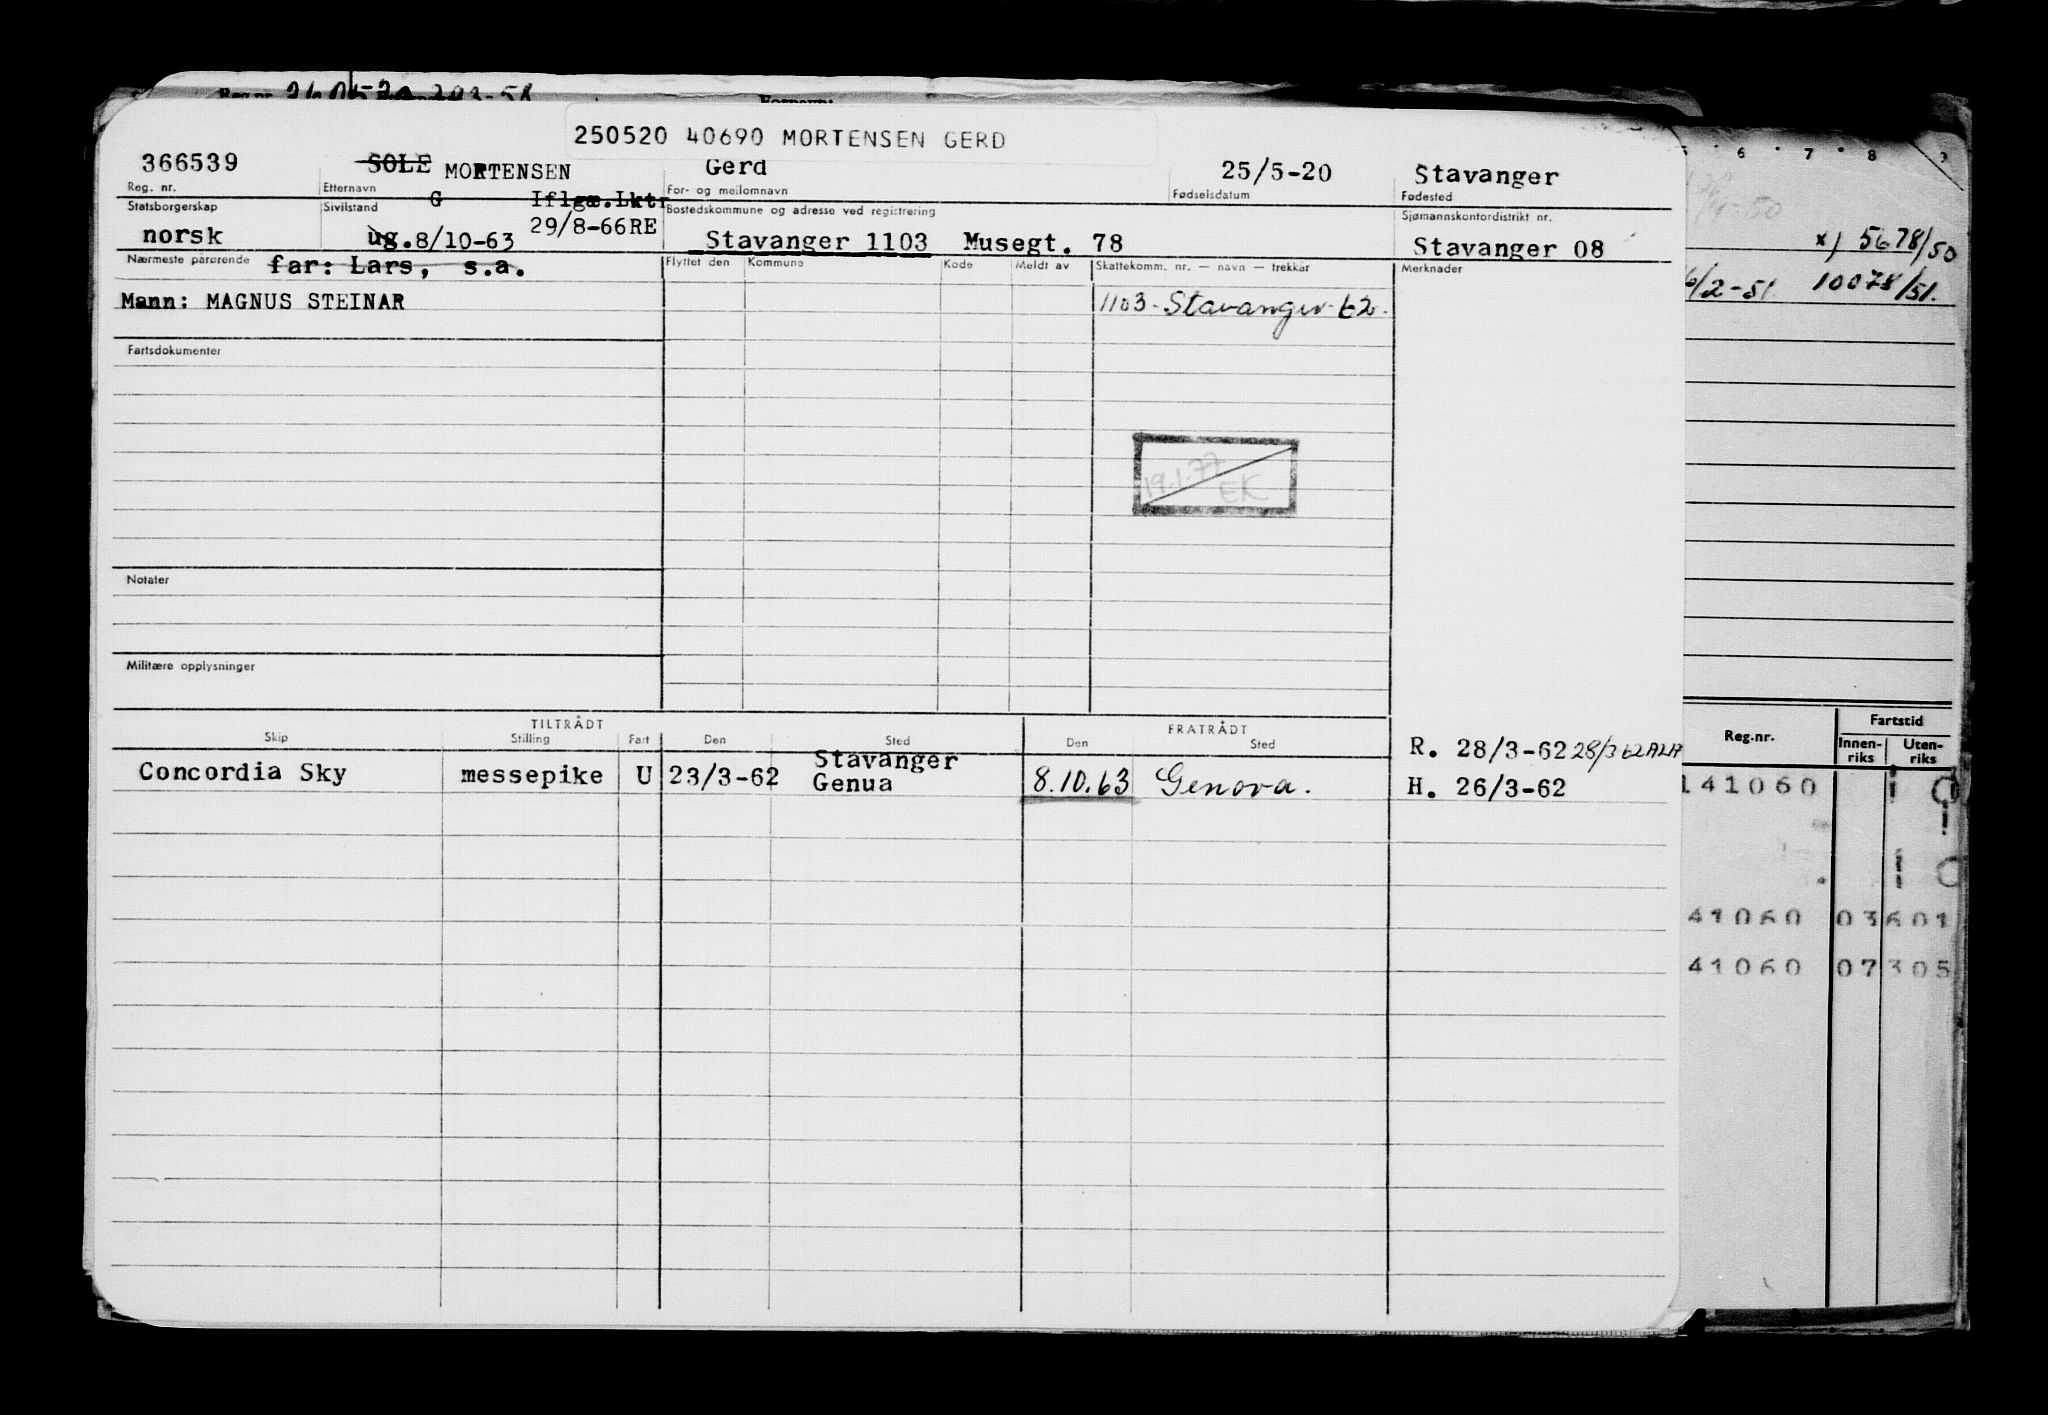 250520 40690 MORTENSEN GERD
366539 SOLE MORTENSEN Gerd 25/5-20 Stavanger
Reg. nr. Etternavn For- og mellomnavn Fødselsdatum Fødested
G Iflgæ.Lktr
Statsborgerskap Sivilstand Bostedskommune og adresse ved registrering Sjømannskontordistrikt nr.
norsk ug. 8/10-63 29/8-66RE Stavanger 1103 Musegt. 78 Stavanger 08
Nærmeste pårørende far: Lars, s.a. Flyttet den Kommune Kode Meldt av Skattekomm. nr. — navn — trekkår Merknader
Mann: MAGNUS STEINAR 1103 - Stavanger t2.
Fartsdokumenter
19.1.77
EK
Notater
Militære opplysninger
TILTRÅDT FRATRÅDT
Skip Stilling Fart Den Sted Den Sted
Concordia Sky messepike U 23/3-62 Stavanger
Genua 8.10.63 Genova.
R. 28/3-62 28/3 62
H. 26/3-62
6 7 8
x) 5678/50
6/2-51. 10078/51.
Reg.nr. Fartstid
Innen-
riks Uten-
riks
141060
41060 03601
41060 07305